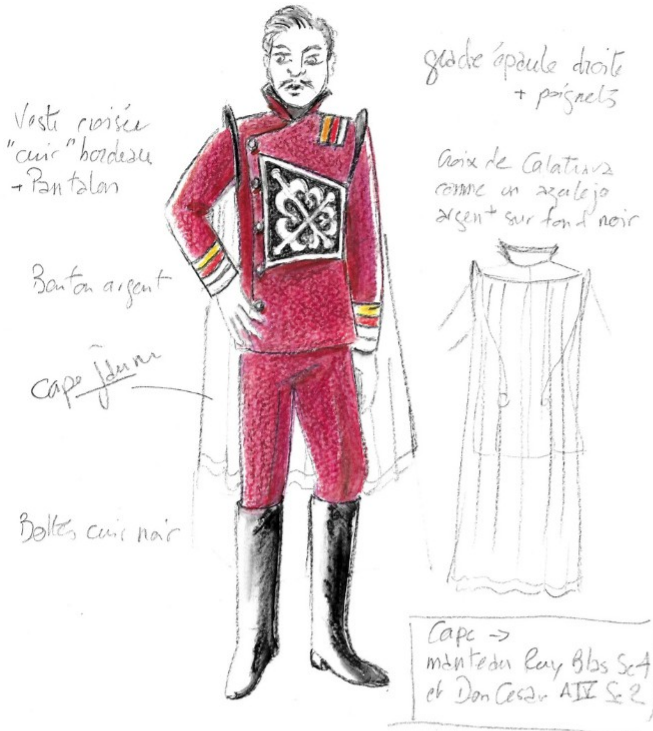 Veste croisée
"cuir" bordeau
+ Pantalon
Bouton argent
cape
Bottes cuir noir
grade épaule droite
+ poignets
Croix de Calatrava
comme un azulejo
argent sur fond noir
Cape →
manteau Ruy Blas Sc4
et Don Cesar A IV Sc 2